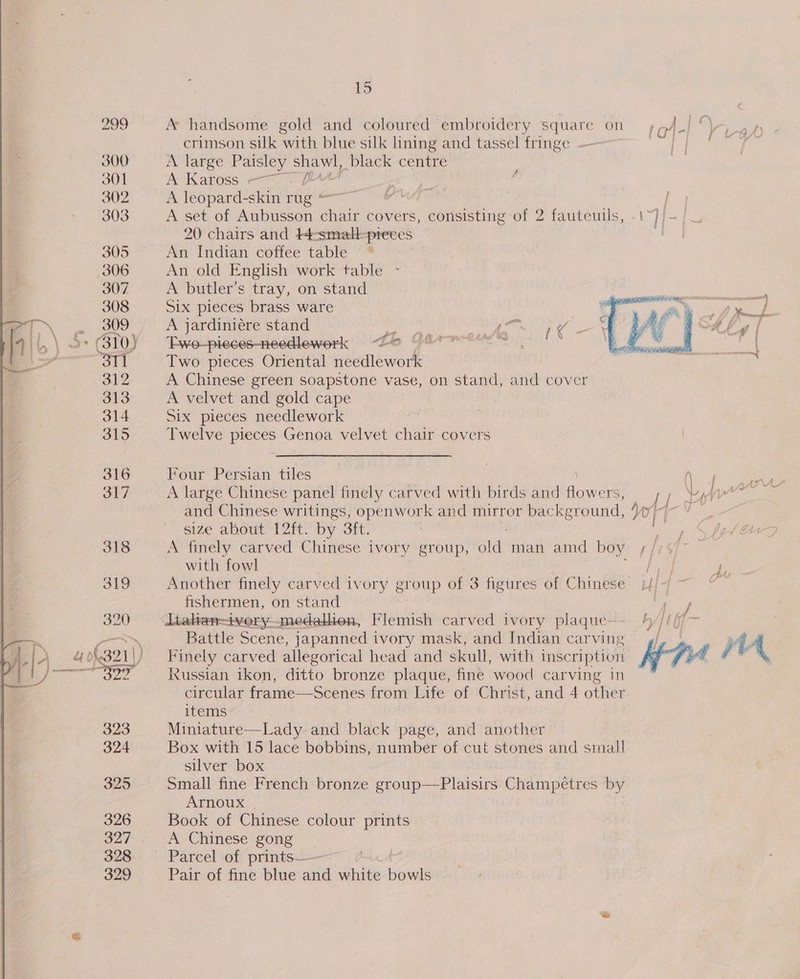 15
299 A handsome gold and coloured embroidery square on
crimson silk with blue silk lining and tassel fringe
300 A large Paisley shawl, black centre
301 A Kaross
302 A leopard-skin rug
303 A set of Aubusson chair covers, consisting of 2 fauteuils,
20 chairs and 14 small pieces
305 An Indian coffee table
306 An old English work table
307 A butler's tray, on stand
308 Six pieces brass ware
309 A jardinière stand
310 Two pieces needlework
311 Two pieces Oriental needlework
312 A Chinese green soapstone vase, on stand, and cover
313 A velvet and gold cape
314 Six pieces needlework
315 Twelve pieces Genoa velvet chair covers
316 Four Persian tiles
317 A large Chinese panel finely carved with birds and flowers,
and Chinese writings, openwork and mirror background,
size about 12ft. by 3ft.
318 A finely carved Chinese ivory group, old man amd boy
with fowl
319 Another finely carved ivory group of 3 figures of Chinese
fishermen, on stand
320 Italian ivory medallion, Flemish carved ivory plaque—
Battle Scene, japanned ivory mask, and Indian carving
321 Finely carved allegorical head and skull, with inscription
322 Russian ikon, ditto bronze plaque, fine wood carving in
circular frame—Scenes from Life of Christ, and 4 other
items
323 Miniature—Lady and black page, and another
324 Box with 15 lace bobbins, number of cut stones and small
silver box
325 Small fine French bronze group—Plaisirs Champêtres by
Arnoux
326 Book of Chinese colour prints
327 A Chinese gong
328 Parcel of prints
329 Pair of fine blue and white bowls